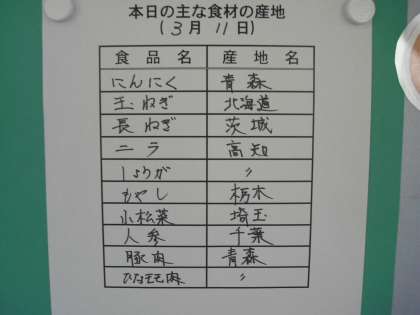 本日の主な食材の産地
(3月11日)
食品名 産地名
にんにく 青森
玉ねぎ 北海道
長ねぎ 茨城
ニラ 高知
しょうが 〃
もやし 栃木
小松菜 埼玉
人参 千葉
豚肉 青森
ひなモモ肉 〃